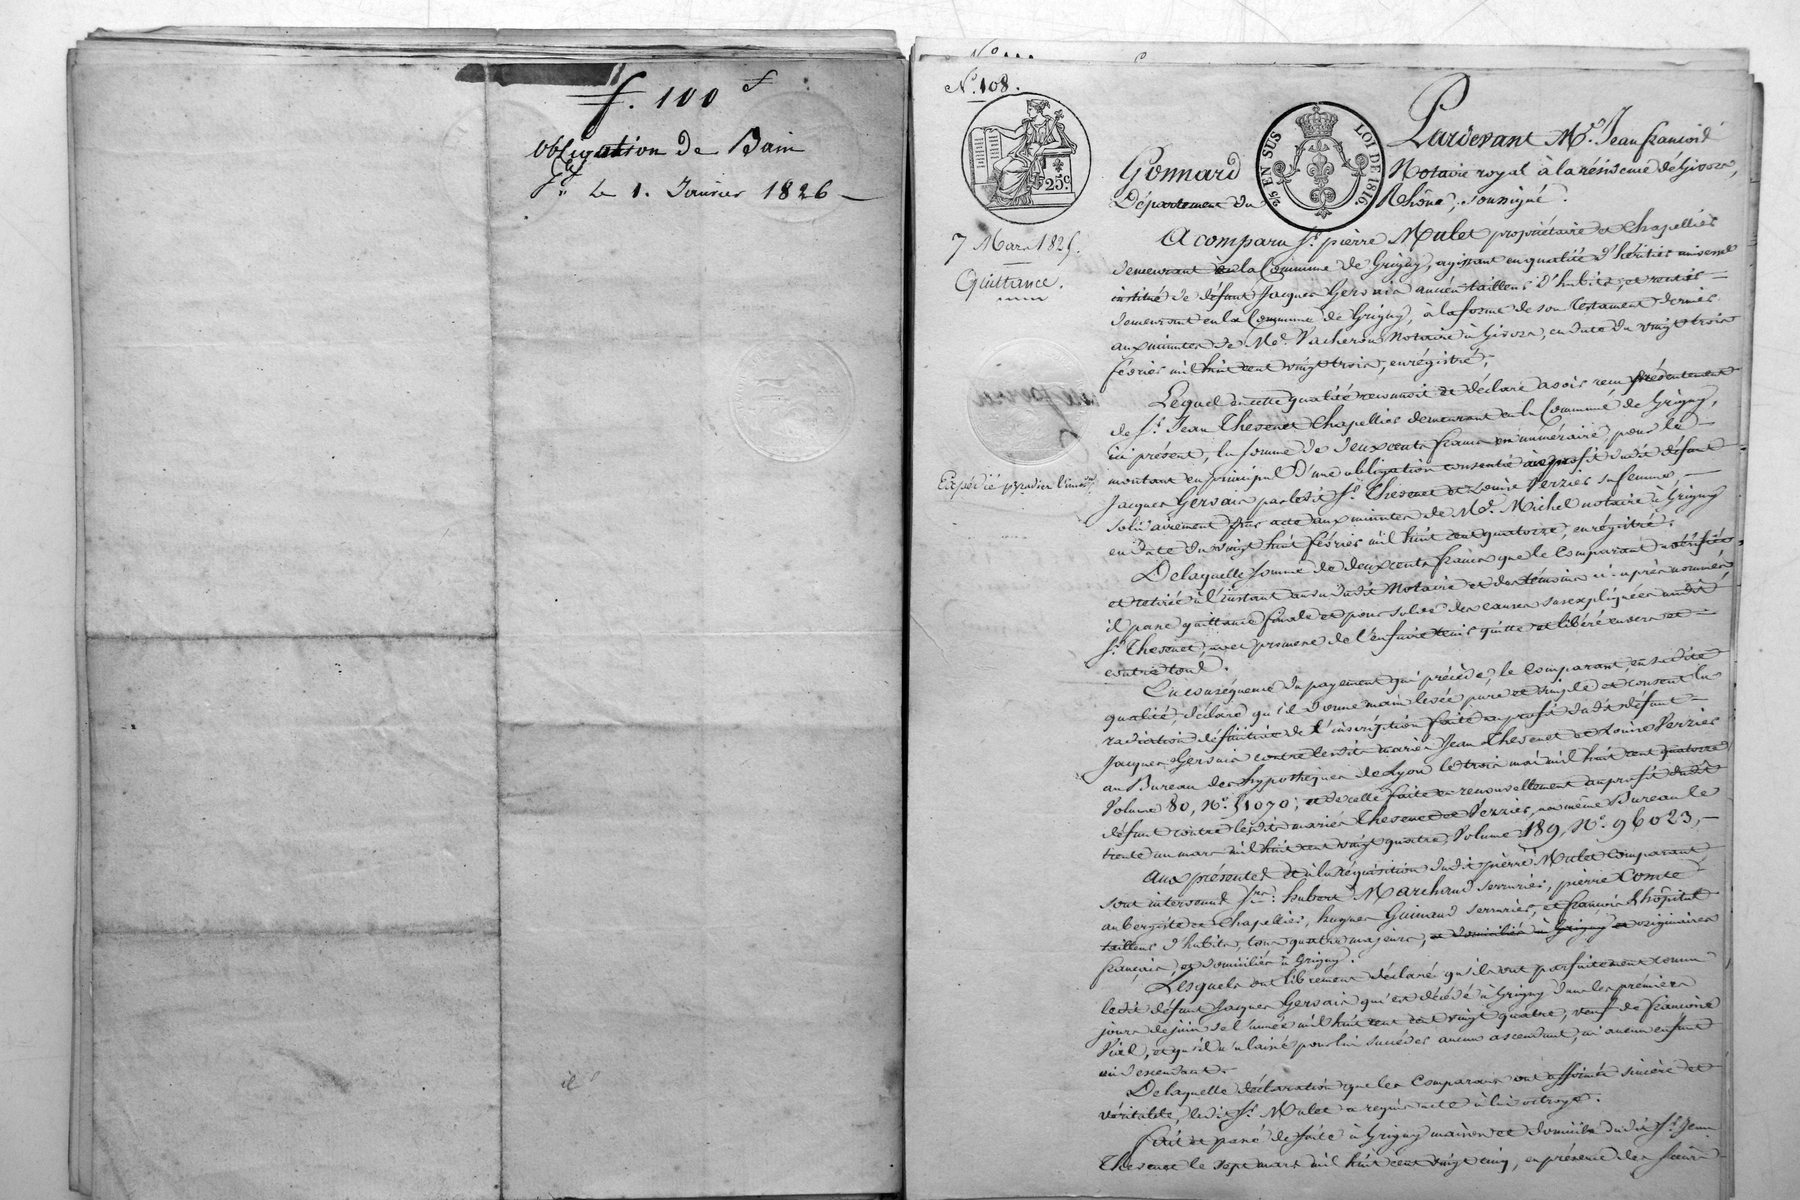 f. 100 f
obligation de Bain
Le 1. Janvier 1826
N.º 108.
25c.
2/5 EN SUS
LOI DE 1816.
7 Mars 1825.
Quittance.
Expédié
Pardevant Me. Jean françois
Gonnard Notaire royal à la résidence de Givors,
Département du Rhône, soussigné.
A comparu Sr. pierre Mulet propriétaire et Chapellier
demeurant en la Commune de Grigny, agissant en qualité d'héritier universel
institué de défunt Jacques Gervais ancien tailleur d'habits, et rentier
demeurant en la Commune de Grigny, à la forme de son testament dernier
aux minutes de Me. Vacheron Notaire à Givors, en date du vingt trois
février mil huit cent vingt trois, enrégistré;
Lequel en cette qualité reconnoit et déclare avoir reçu présentement
de Sr. Jean Thevenet Chapellier demeurant en la Commune de Grigny,
ici présent, la somme de deux cents francs en numéraire, pour le
montant en principal d'une obligation consentie au profit dudit défunt
Jacques Gervais par ledit Sr. Thevenet et Louise Verrier sa femme,
solidairement par acte aux minutes de Me. Michel notaire à Grigny
en date du vingt huit février mil huit cent quatorze, enrégistré.
De laquelle somme de deux cents francs que le Comparant a vérifiée
et retirée à l'instant au vu dudit Notaire et des témoins ci-après nommés
il passe quittance finale et pour solde des causes susexpliquées audit
Sr. Thevenet, avec promesse de l'en faire tenir quitte et libéré envers et
contre tous.
En conséquence du payement qui précède, le Comparant, en sa dite
qualité, déclare qu'il donne main levée pure et simple et consent la
radiation définitive de l'inscription faite au profit dudit défunt
Jacques Gervais contre lesdits mariés Jean Thevenet et Louise Verrier
au Bureau des hypothèques de Lyon le trois mai mil huit cent quatorze
Volume 80, Nº. 51070; et de celle faite en renouvellement au profit dudit
défunt contre lesdits mariés Thevenet et Verrier, au même Bureau le
trente un mars mil huit cent vingt quatre, Volume 189, Nº. 96023,
Aux présentes et à la réquisition dudit pierre Mulet comparant
sont intervenus Srs. hubert Marchand serrurier, pierre Comte
aubergiste et Chapellier, hugues Guinand serrurier, et françois L'hôpital
tailleur d'habits, tous quatre majeurs, et domiciliés à Grigny et originaires
français, et domiciliés à Grigny.
Lesquels ont librement déclaré qu'ils ont parfaitement connu
ledit défunt Jacques Gervais qui est décédé à Grigny dans les premiers
jours de juin de l'année mil huit cent vingt quatre, veuf de françoise
Vial, et qu'il n'a laissé pour lui succéder aucun ascendant, ni aucun enfant
ni descendant.
De laquelle déclaration que les Comparans ont affirmée sincère et
véritable, ledit Sr. Mulet a requis acte à lui octroyé.
fait et passé de suite à Grigny maison et domicile dudit Sr. Jean
Thevenet le sept mars mil huit cent vingt cinq, en présence des sieurs